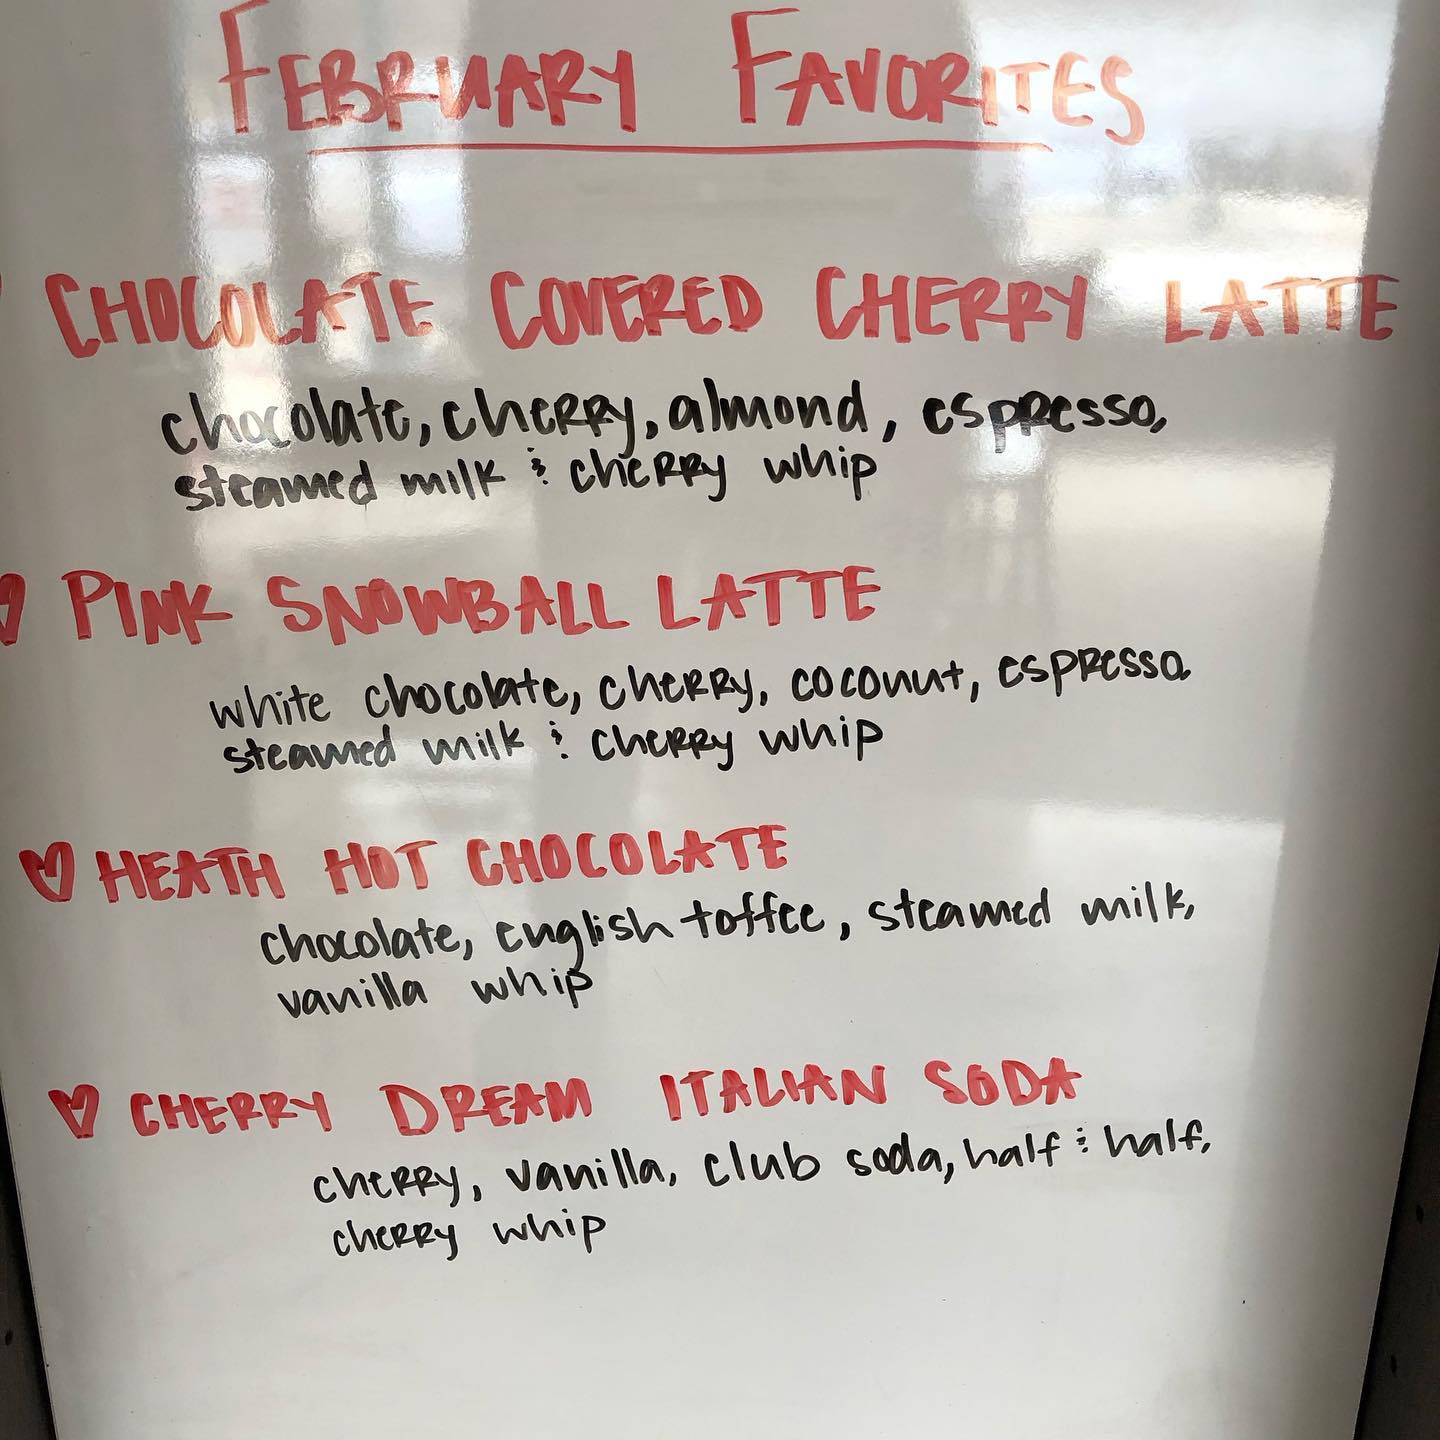 FEBRUARY FAVORITES
CHOCOLATE COVERED CHERRY LATTE
chocolate, cherry, almond, espresso,
steamed milk & cherry whip
PINK SNOWBALL LATTE
white chocolate, cherry, coconut, espresso.
steamed milk & cherry whip
HEATH HOT CHOCOLATE
chocolate, english toffee, steamed milk,
vanilla whip
CHERRY DREAM ITALIAN SODA
cherry, vanilla, club soda, half & half,
cherry whip